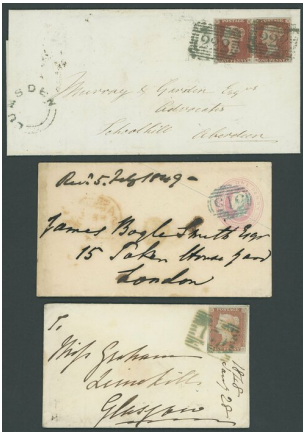 LUMSDEN
Murray & Garden Esqrs
Advocates
Schoolhill Aberdeen
Recd 5. Feby 1849
James Bogle Smith Esqr
15 Token House Yard
London
To
Miss Graham
Limekilns
Glasgow
1848
Aug 28